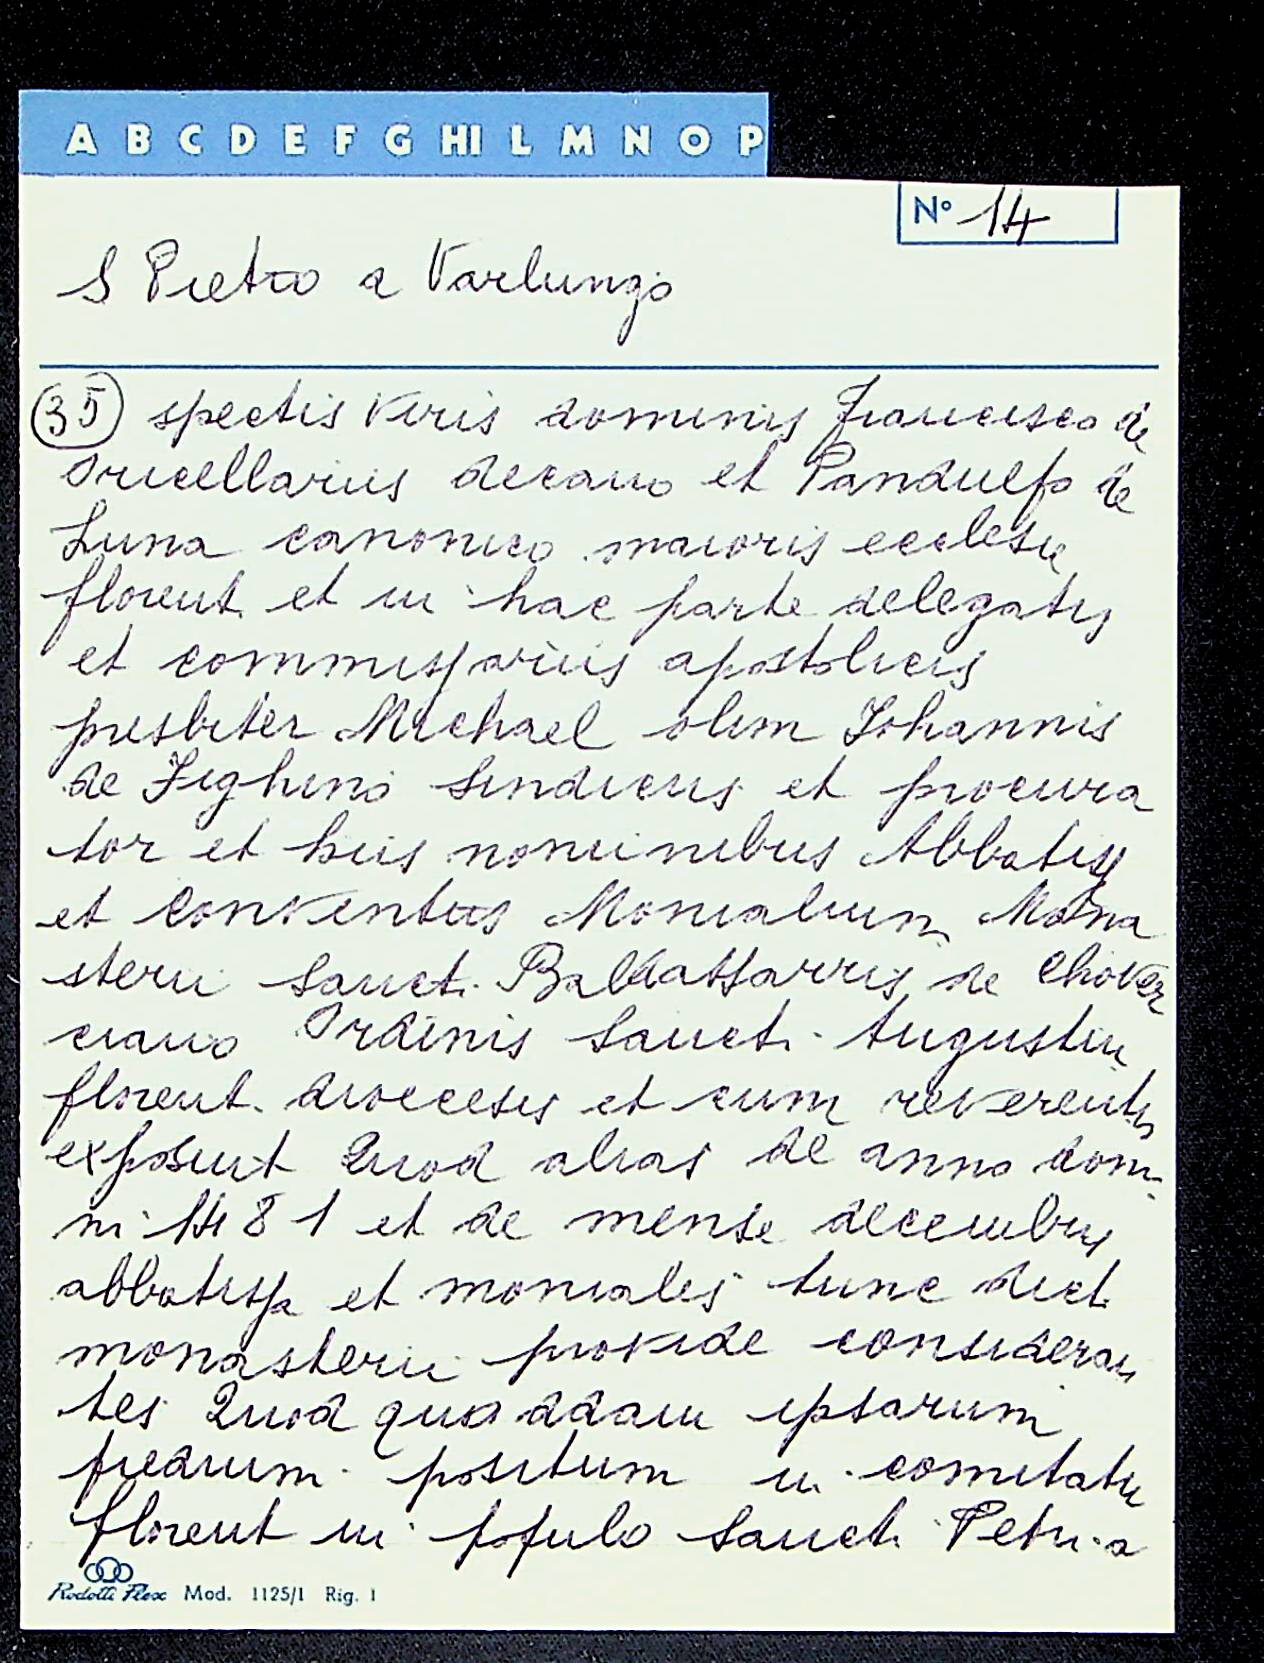 A B C D E F G HI L M N O P
N° 14
S Pietro a Varlungo
35 spectis Viris dominis Francisco de
Oricellariis decano et Pandulfo de
Luna canonico maioris ecclesie
florent. et in hac parte delegatis
et commissariis apostolicis
presbiter Michael olim Johannis
de Fighino Sindicus et procura
tor et hiis nominibus Abbatisse
et Conventus Monialium Mona
sterii Sanct. Baldassarris de Chover
ciano Ordinis Sanct. Augustin
florent. diocecesis et cum reverentia
exposuit Quod alias de anno dom-
ni 1481 et de mense decembris
abbatissa et moniales tunc dict.
monasterii provide consideran
tes Quod quoddam ipsarum
predium positum in comitatu
florent in populo Sanct. Petri a
Rodotti Flex Mod. 1125/1 Rig. 1